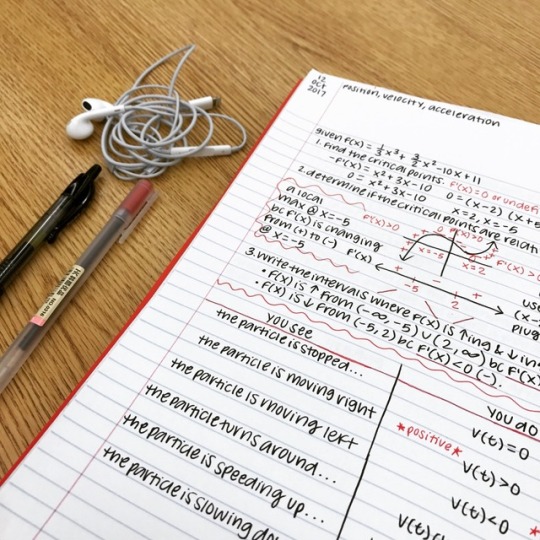 12
OCT
2017
position, velocity, acceleration
given f(x) = 1/3 x³ + 3/2 x² - 10x + 11
1. Find the critical points. f'(x)=0 or undefi
-f'(x) = x² + 3x - 10 0 = (x-2)(x+5)
0 = x² + 3x - 10 x = 2, x = -5
2. determine if the critical points are relati
a local
max @ x = -5
bc f'(x) is changing
from (+) to (-)
@ x = -5
f'(x)>0
f'(x)>0
f'(x)>0
x=-5
x=2
f'(x)
+ - +
-5 2
use
(x-
plug
3. write the intervals where f(x) is ↑ing & ↓in
• f(x) is ↑ from (-∞, -5) ∪ (2, ∞) bc f'(x)
• f(x) is ↓ from (-5, 2) bc f'(x) < 0 (-).
you see
you do
the particle is stopped...
v(t) = 0
the particle is moving right
*positive*
v(t) > 0
the particle is moving left
v(t) < 0
the particle turns around...
the particle is speeding up...
the particle is slowing do